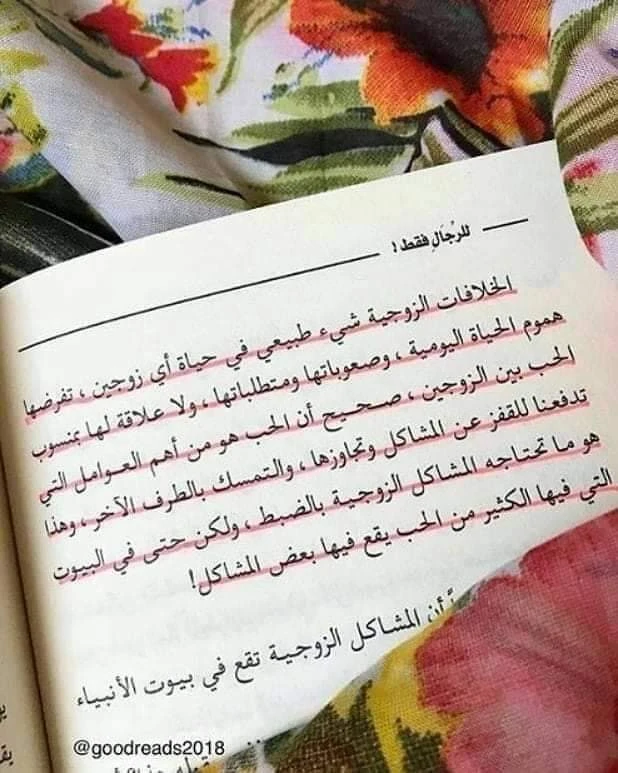 للرجال فقط !
الخلافات الزوجية شيء طبيعي في حياة أي زوجين ، تفرضها
هموم الحياة اليومية ، وصعوباتها ومتطلباتها ، ولا علاقة لها بمنسوب
الحب بين الزوجين ، صحيح أن الحب هو من أهم العوامل التي
تدفعنا للقفز عن المشاكل وتجاوزها ، والتمسك بالطرف الآخر ، وهذا
هو ما تحتاجه المشاكل الزوجية بالضبط ، ولكن حتى في البيوت
التي فيها الكثير من الحب يقع فيها بعض المشاكل !
أن المشاكل الزوجية تقع في بيوت الأنبياء
@goodreads2018